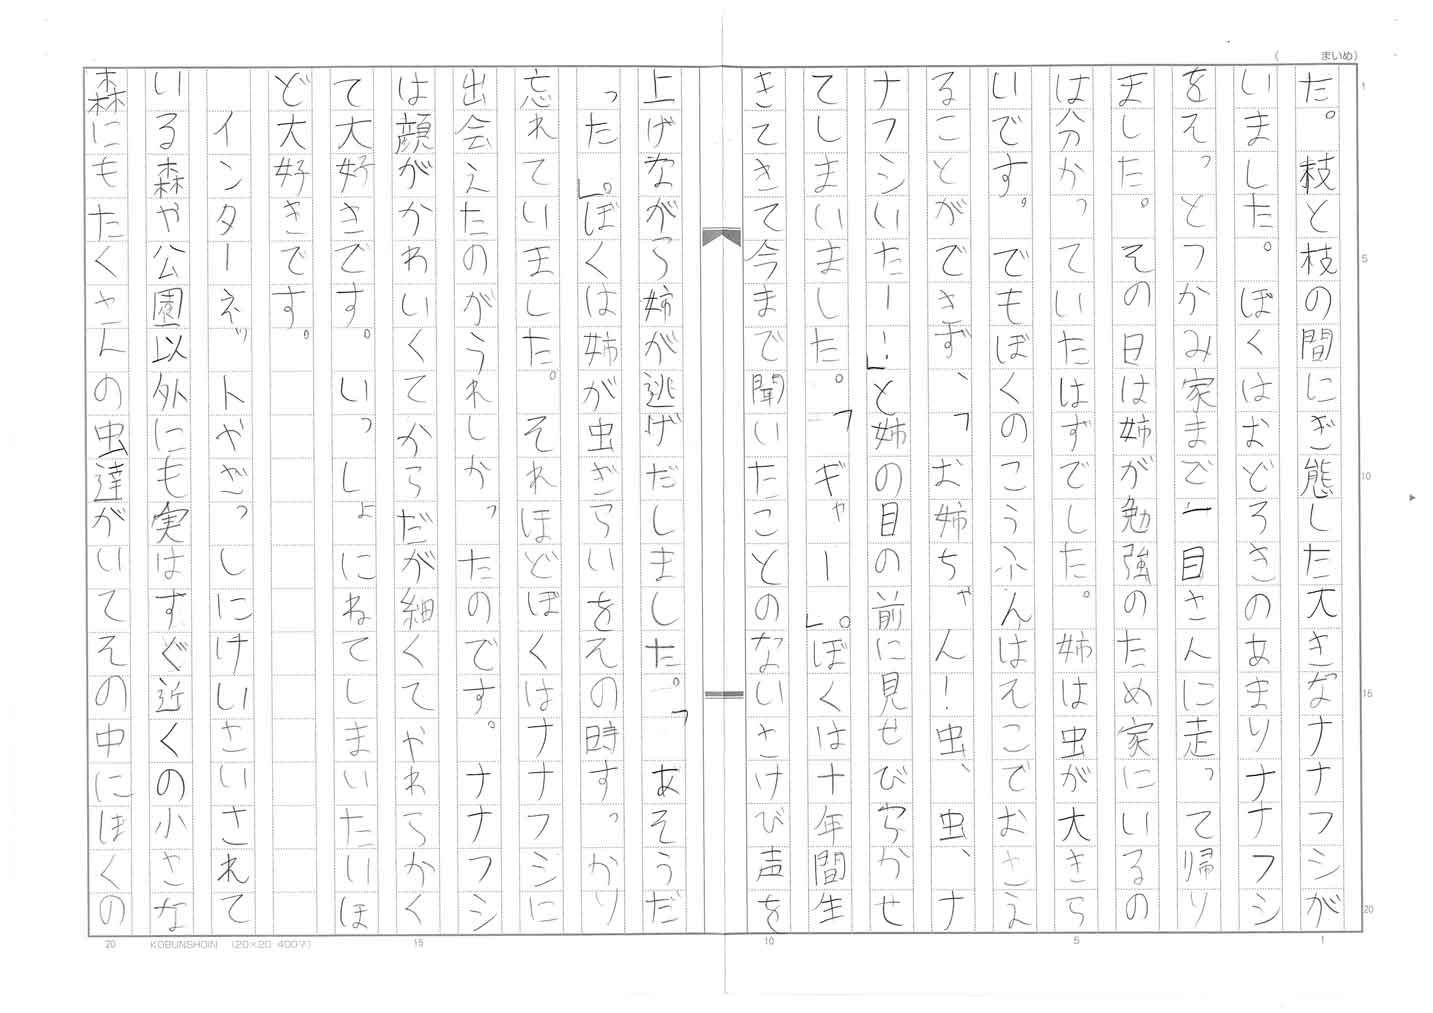 (　　まいめ)
た。枝と枝の間にぎ態した大きなナナフシが
いました。ぼくはおどろきのあまりナナフシ
をそっとつかみ家まで一目さんに走って帰り
ました。その日は姉が勉強のため家にいるの
は分かっていたはずでした。姉は虫が大きら
いです。でもぼくのこうふんはえこでおさえ
ることができず、「お姉ちゃん！虫、虫、ナ
ナフシいたー！」と姉の目の前に見せびらかせ
てしまいました。「ギャー」。ぼくは十年間生
きてきて今まで聞いたことのないさけび声を
上げながら姉が逃げだしました。「あそうだ
った」。ぼくは姉が虫ぎらいをその時すっかり
忘れていました。それほどぼくはナナフシに
出会えたのがうれしかったのです。ナナフシ
は顔がかわいくてからだが細くてやわらかく
て大好きです。いっしょにねてしまいたいほ
ど大好きです。
インターネットやざっしにけいさいされて
いる森や公園以外にも実はすぐ近くの小さな
森にもたくさんの虫達がいてその中にはくの
1
5
10
15
20
20 KOBUNSHOIN (20×20 400字) 15 10 5 1